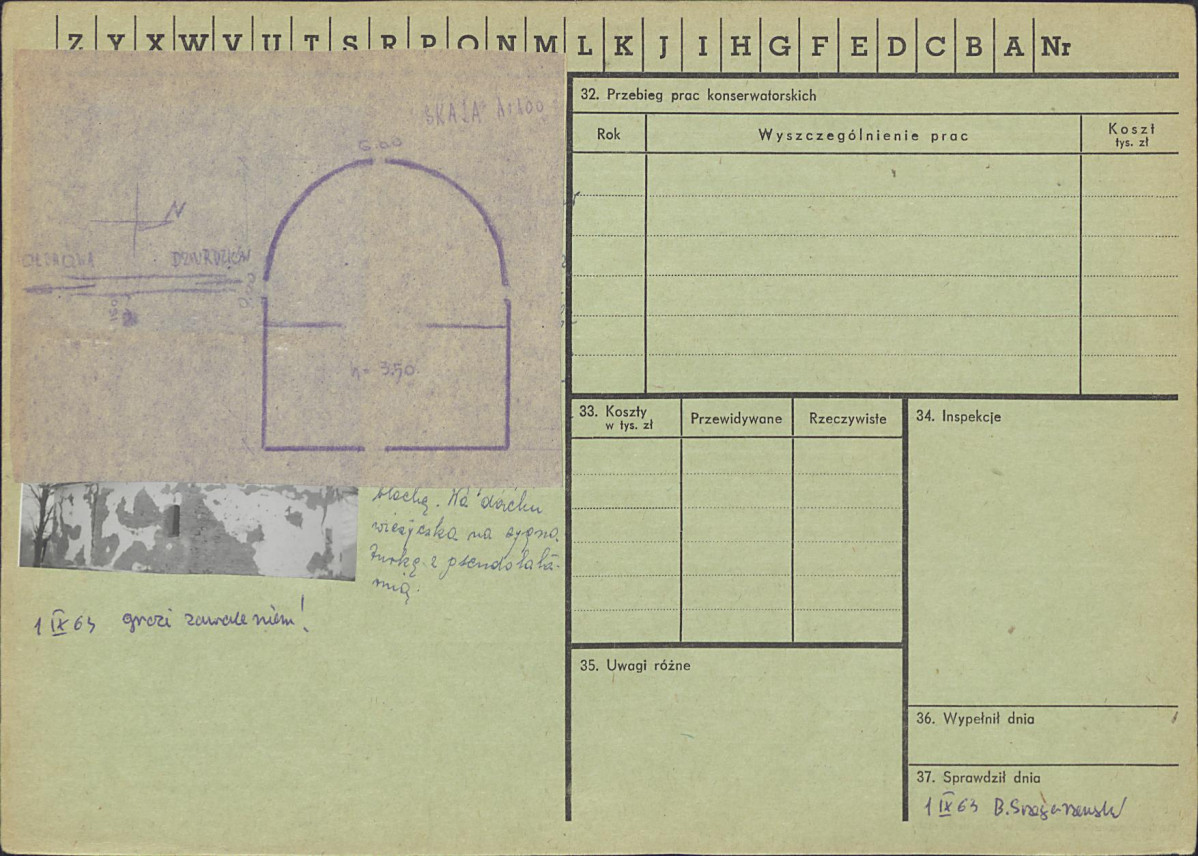 Z Y X W V U T S R P O N M L K J I H G F E D C B A Nr
SKALA 1:100
6.00
N
DZIURDZIÓW
h = 3.50
blachą. Na dachu
wieżyczka na sygna-
turkę z pseudolatar-
nią.
1 IX 63 grozi zawaleniem!
32. Przebieg prac konserwatorskich
Rok
Wyszczególnienie prac
Koszt
tys. zł
33. Koszty
w tys. zł
Przewidywane
Rzeczywiste
34. Inspekcje
35. Uwagi różne
36. Wypełnił dnia
37. Sprawdził dnia
1 IX 63 B.